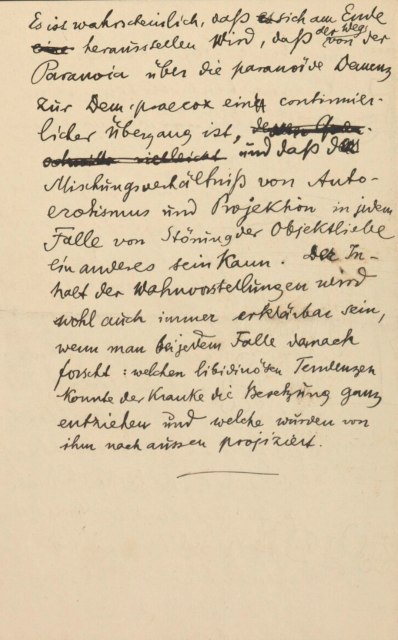 Es ist wahrscheinlich, daß es sich am Ende
herausstellen wird, daß der Weg von der
Paranoia über die paranoide Demenz
zur Dem. praecox ein continuier-
licher Übergang ist,
und daß das
Mischungsverhältniß von Auto-
erotismus und Projektion in jedem
Falle von Störung der Objektliebe
ein anderes sein kann. Der In-
halt der Wahnvorstellungen wird
wohl auch immer erklärbar sein,
wenn man bei jedem Falle danach
forscht: welchen libidinösen Tendenzen
konnte der Kranke die Besetzung ganz
entziehen und welche wurden von
ihm nach aussen projiziert.